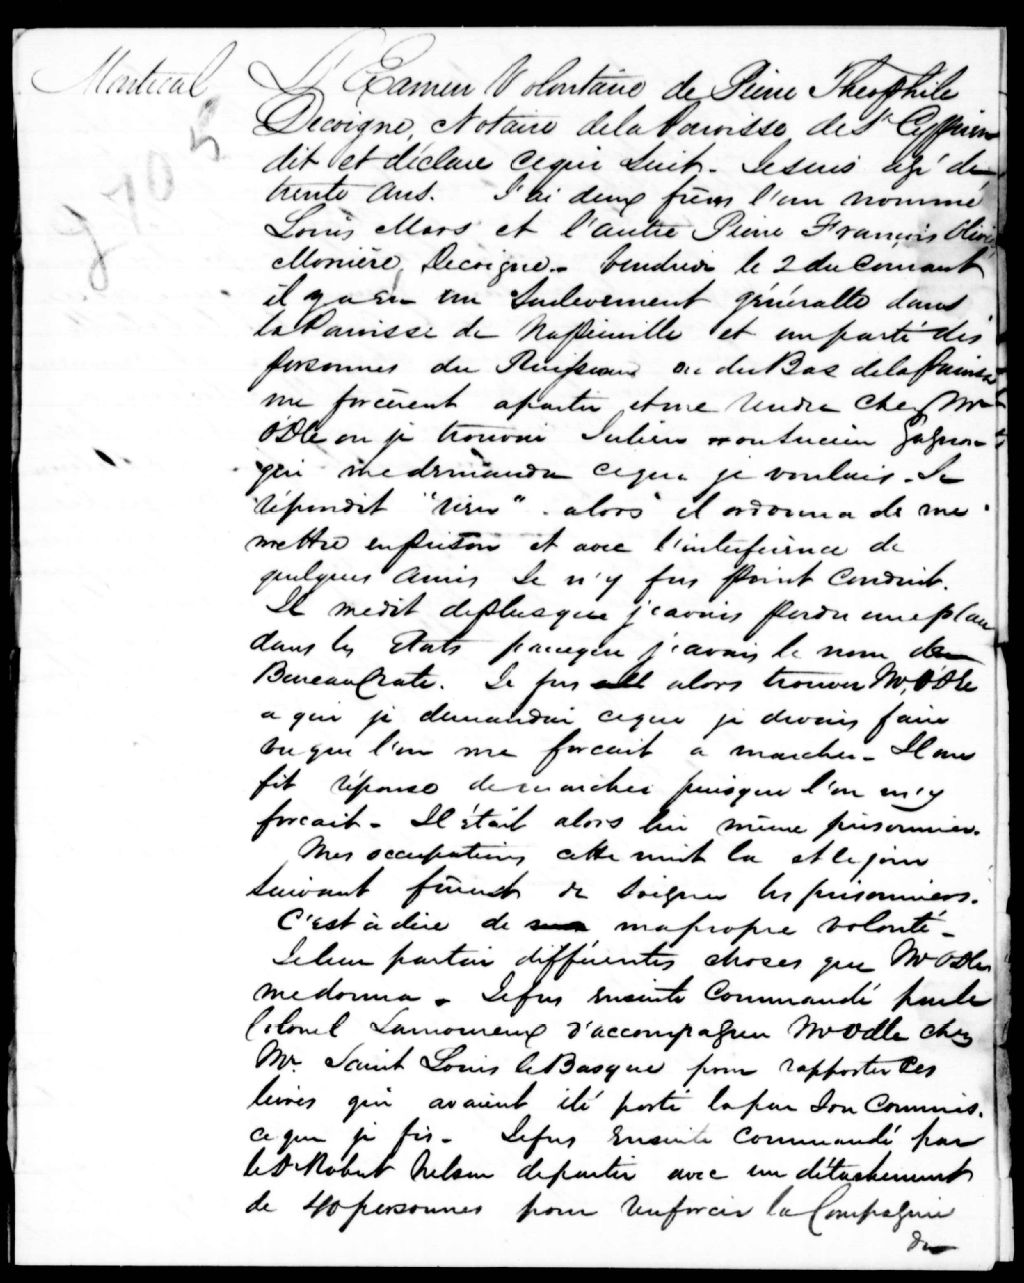 Montreal
L'Examen Volontaire de Pierre Theophile
Decoigne, Notaire de la Paroisse de St Cyprien
dit et déclare cequi suit. Je suis agé de
trente ans. J'ai deux frères l'un nommé
Louis Mars et l'autre Pierre François Olivié
Monière Decoigne. Vendredi le 2 du Courant
il y a eu un Soulevement généralle dans
la Paroisse de Napierville et un parti des
personnes du Ruisseau ou du Bas de la Paroisse
me forcèrent a partir et me rendre chez Mr
Odle ou je trouvai Julien Gagnon
qui me demanda ceque je voulais. Je
répondit "rien". alors il ordonna de me
mettre en prison et avec l'interférence de
quelques amis Je n'y fus point Conduit.
Il me dit deplus que j'avais perdu une place
dans les Etats parceque j'avais le nom de
Bureaucrate. Je fus alors trouver Mr. Odle
a qui je demandai ceque je devais faire
vu que l'on me forcait a marcher. Il me
fit réponse de marcher puisque l'on m'y
forcait. Il était alors lui même prisonnier.
Mes occupations cette nuit la et le jour
suivant furent de soigner les prisonniers.
C'est à dire de ma propre volonté.
Je leur portai différentes choses que Mr Odle
me donna. Je fus ensuite Commandé par le
Colonel Lamoureux d'accompagner Mr Odle chez
Mr. Saint Louis le Basque pour rapporter Ces
livres qui avaient été porté la par Son Commis.
ce que je fis. Je fus Ensuite Commandé par
le Dr Robert Nelson de partir avec un détachement
de 40 personnes pour renforcir la Compagnie
du